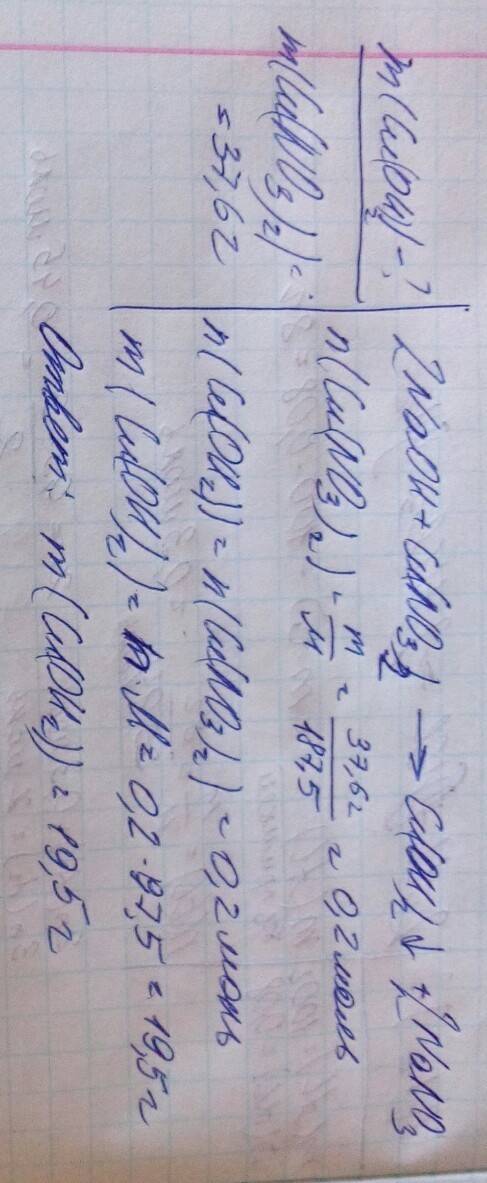 m(Cu(OH)₂) - ?
m(Cu(NO₃)₂) =
= 37,6г
2NaOH + Cu(NO₃)₂ → Cu(OH)₂↓ + 2NaNO₃
n(Cu(NO₃)₂) = m/M = 37,6г/187,5 = 0,2 моль
n(Cu(OH₂)) = n(Cu(NO₃)₂) = 0,2 моль
m(Cu(OH)₂) = n·M = 0,2·97,5 = 19,5г
Ответ: m(Cu(OH₂)) = 19,5г